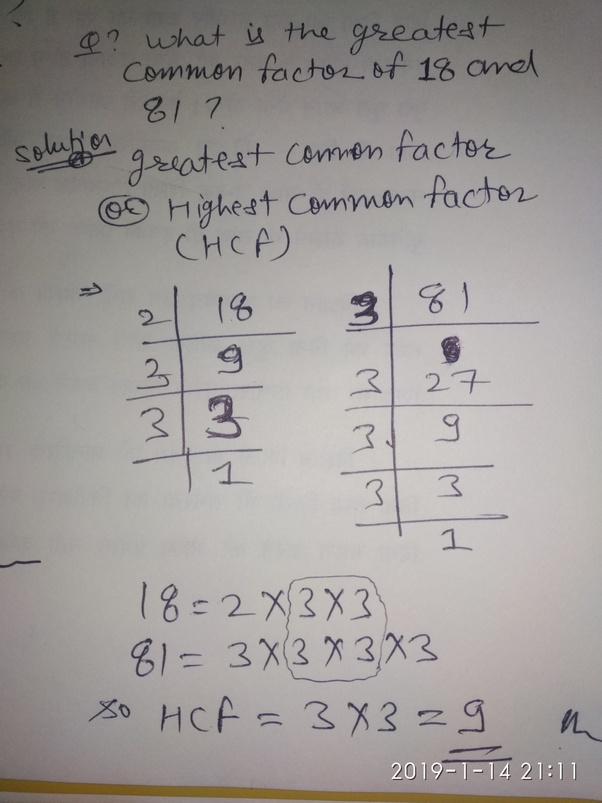 Q? What is the greatest
common factor of 18 and
81?
Solution greatest common factor
OR Highest common factor
(HCF)
⇒
2 | 18
3 | 9
3 | 3
1
3 | 81
3 | 27
3 | 9
3 | 3
1
18 = 2 × 3 × 3
81 = 3 × 3 × 3 × 3
so HCF = 3 × 3 = 9
2019-1-14 21:11